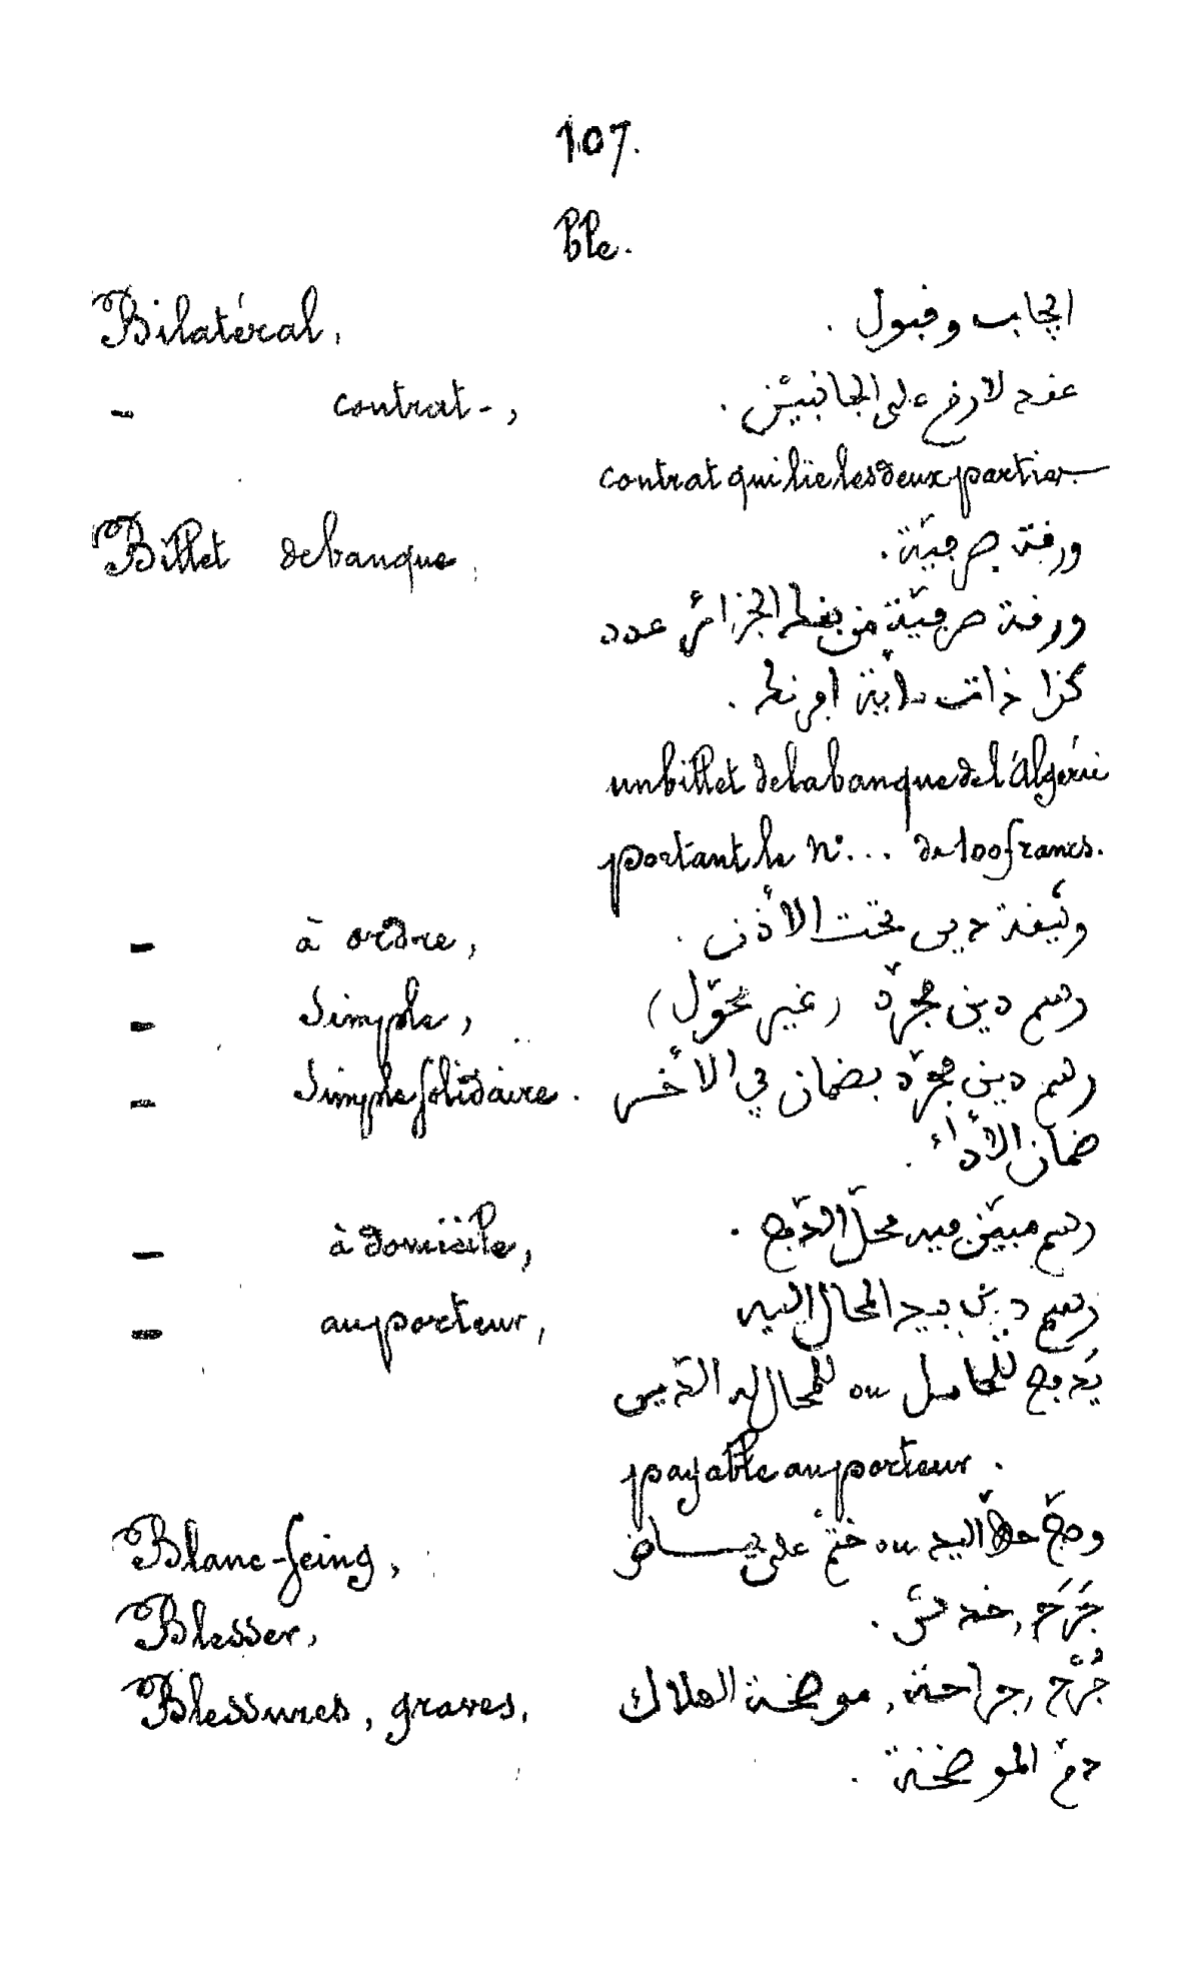 107.
ble.
Bilatéral, ايجاب وقبول .
- contrat -, عقد لازم على الجانبين .
contrat qui lie les deux parties.
Billet de banque, ورقة صرفيّة .
ورقة صرفيّة من بنك الجزائر عدد
كذا ذات مائة افرنك .
un billet de la banque de l'Algérie
portant le N° ... de 100 francs.
- à ordre, وثيقة دين تحت الأذن .
- Simple, رسم دين مجرّد (غير محوّل)
- Simple solidaire. رسم دين مجرّد بضمان في الأخر
ضمان الأداء .
- à domicile, رسم مبيّن فيه محلّ الدّفع .
- au porteur, رسم دين بيد المحال اليه
يُدفع للحامل ou للمحال له الدّين
payable au porteur .
Blanc-seing, وضع خطّ اليد ou ختم على بياض
Blesser, جَرَحَ , خدش .
Blessures, graves, جُرْح , جراحة , موضحة الهلاك
دمّ الموضحة .